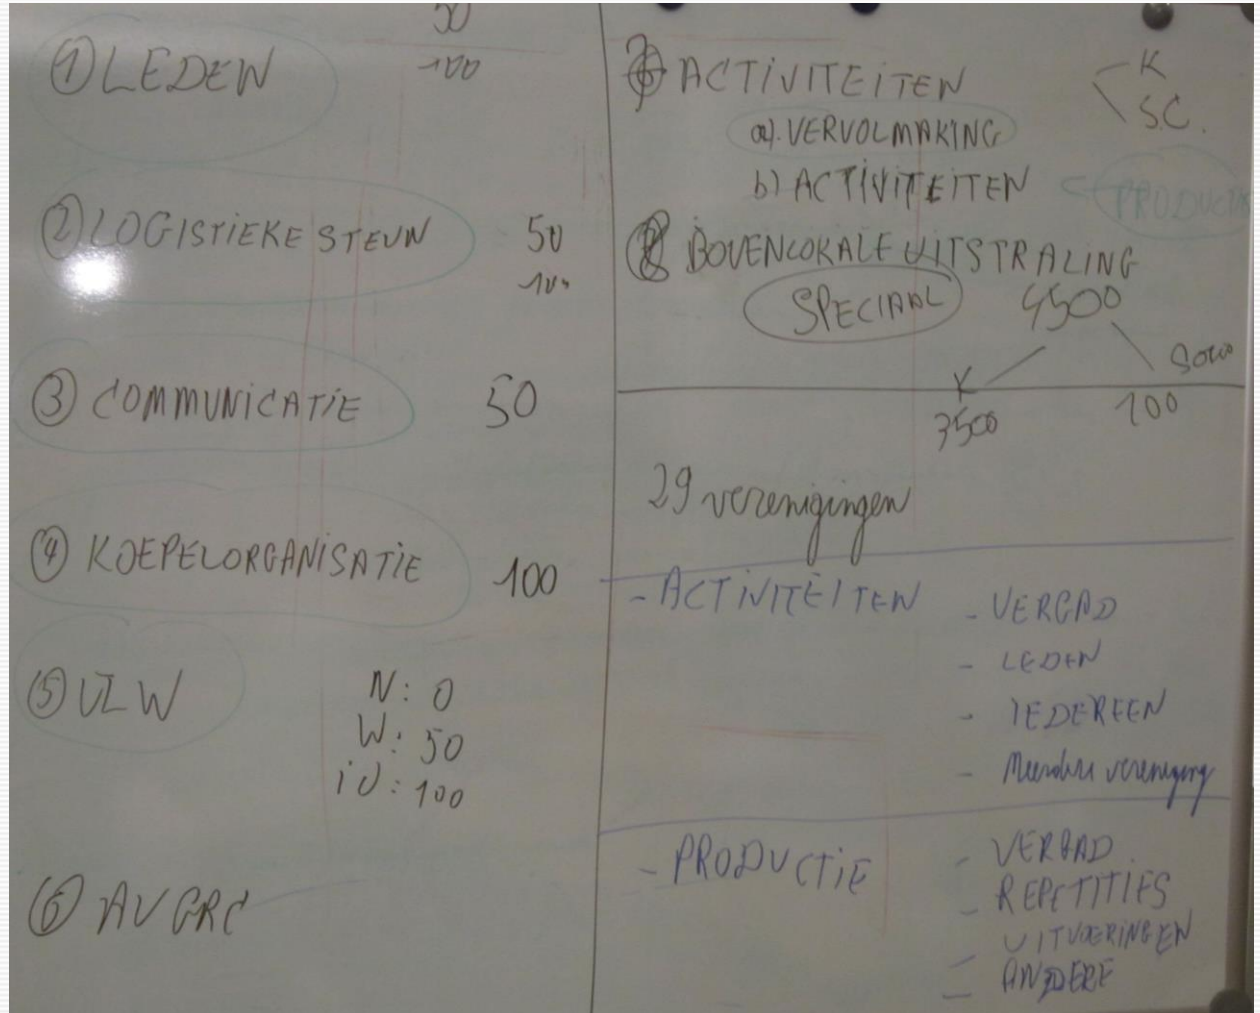 50
① LEDEN 100
② LOGISTIEKE STEUN 50
100
③ COMMUNICATIE 50
④ KOEPELORGANISATIE 100
⑤ VLW N: 0
W: 50
iU: 100
⑥ AV GRC
ACTiViTEiTEN K
S.C.
a). VERVOLMAKING
b) ACTiViTEiTEN < PRODUCTIE
BOVENLOKALE UITSTRALING
SPECIAAL 4500
K Socio
3500 100
29 verenigingen
- ACTiViTEiTEN - VERGAD
- LEDEN
- IEDEREEN
- Meerdere vereniging
- PRODUCTiE - VERGAD.
- REPETITIES
- UITVOERINGEN
- ANDERE